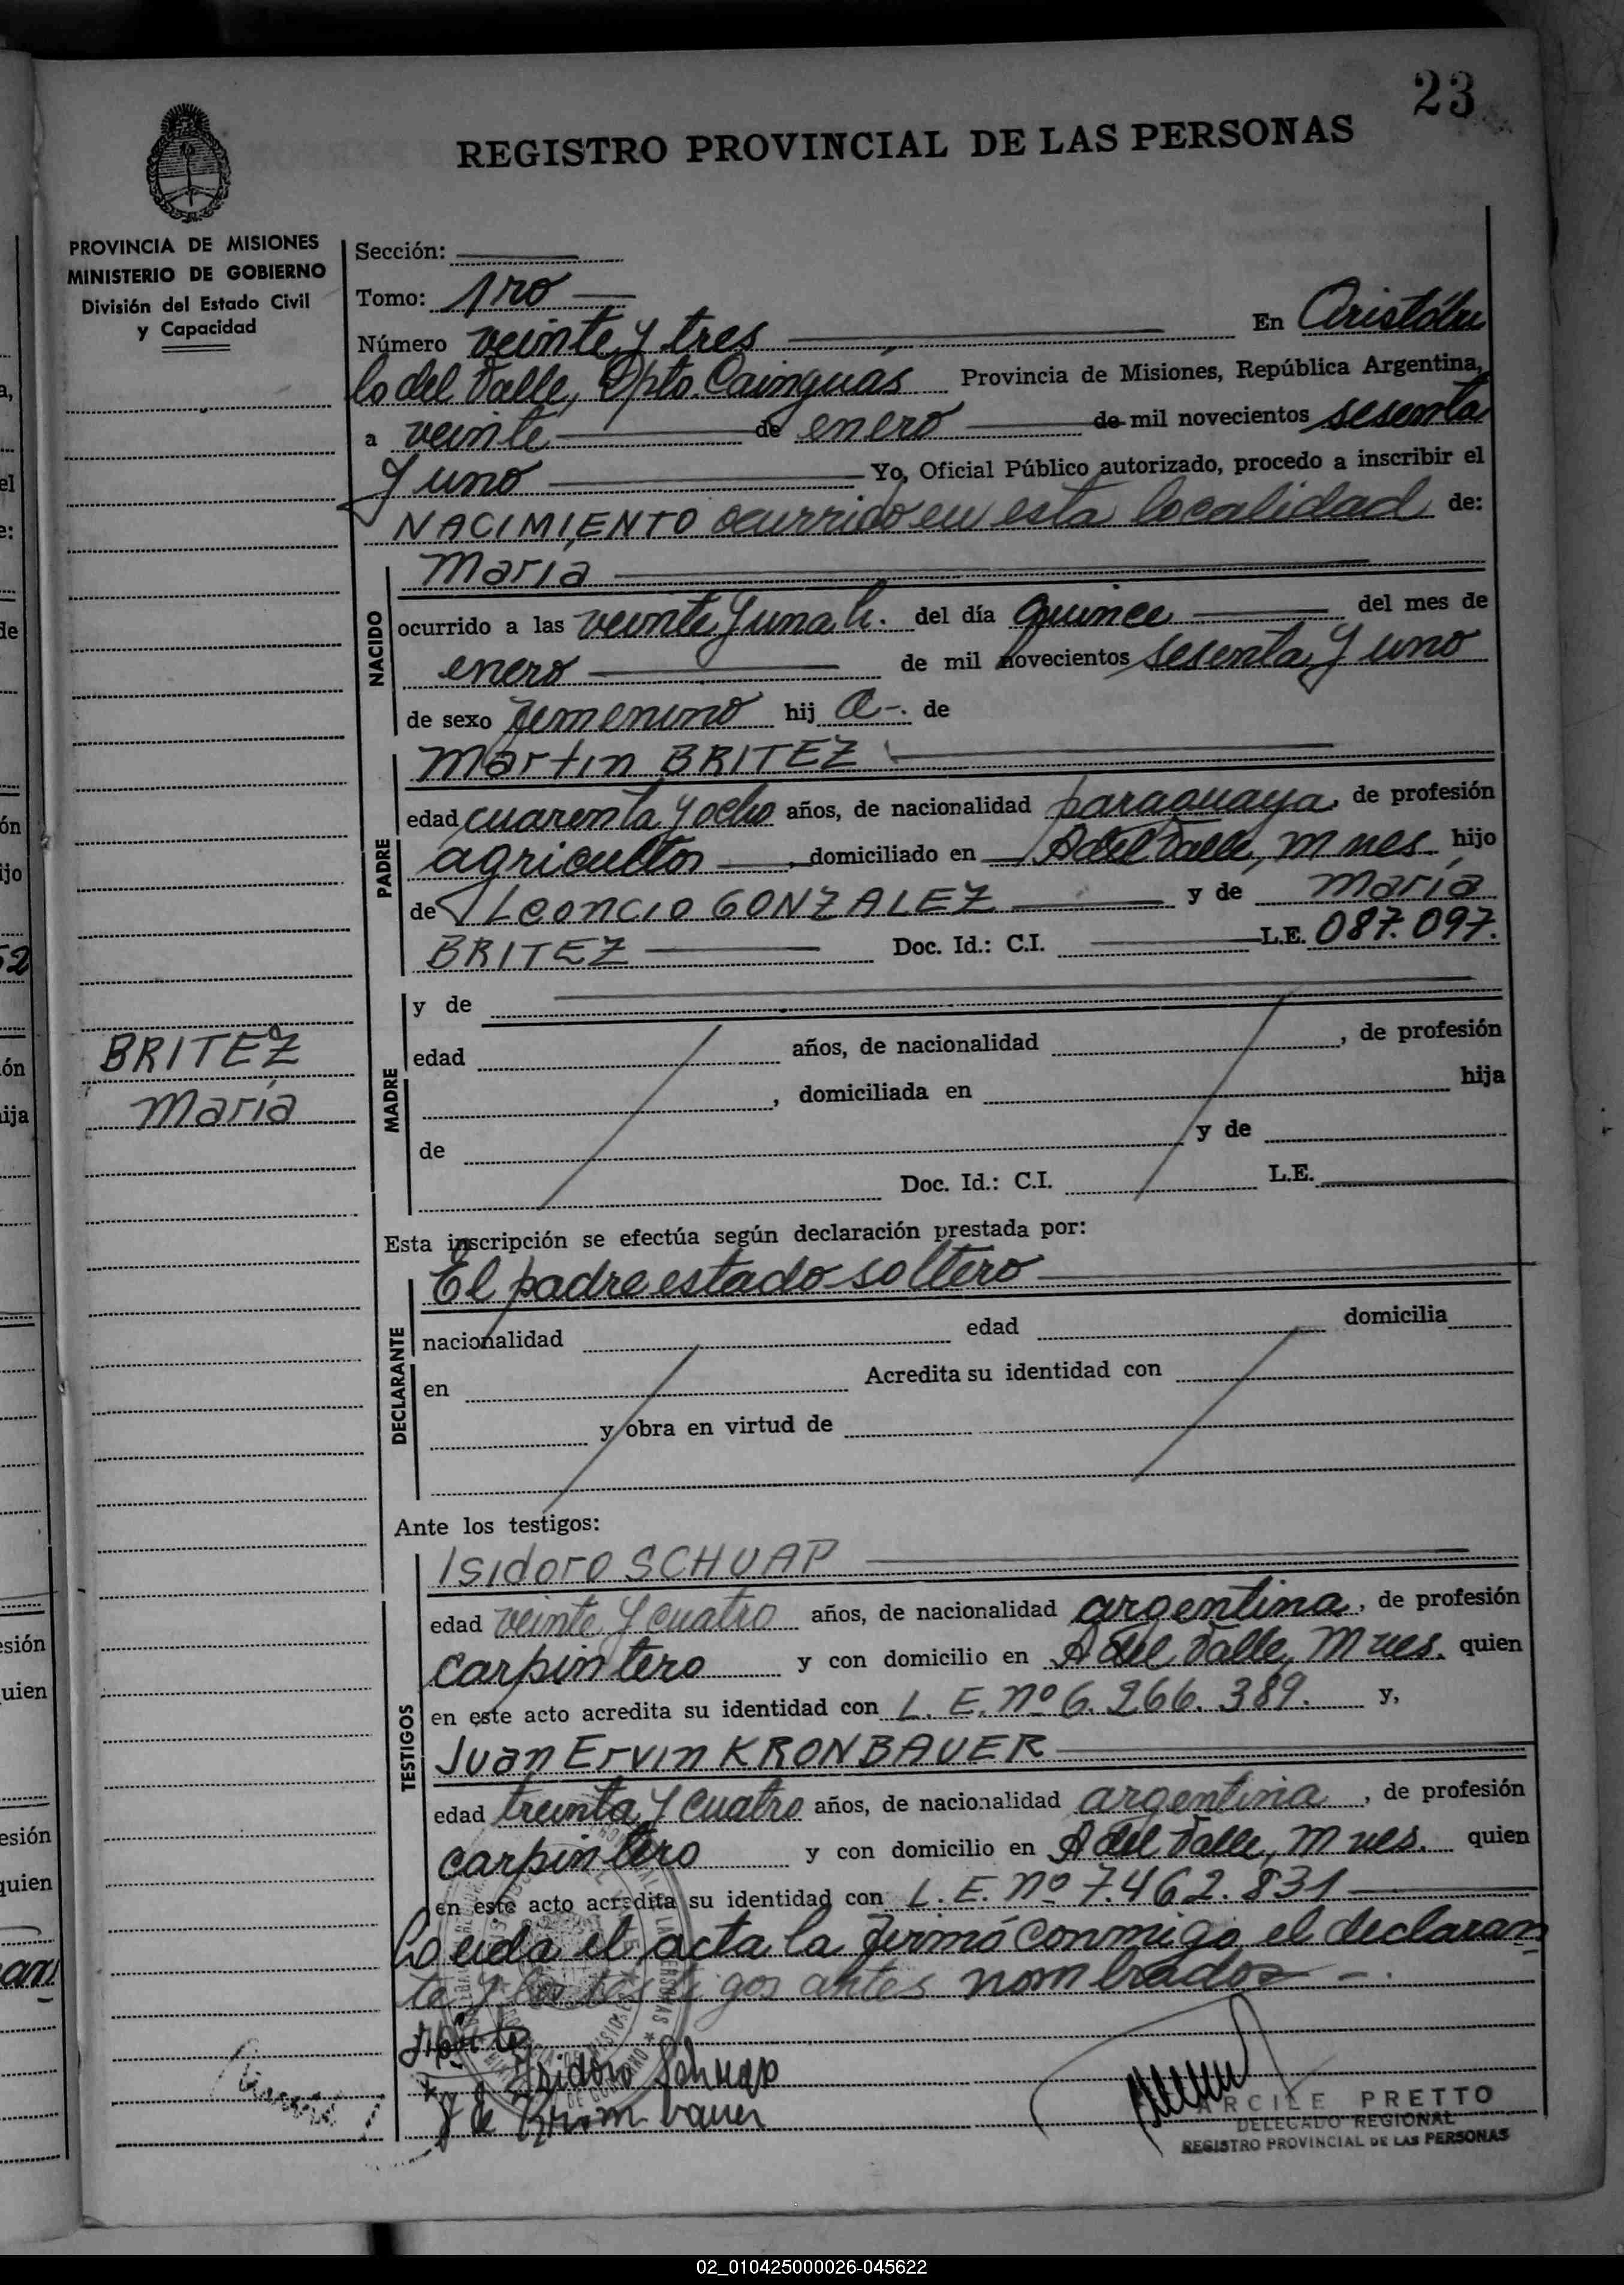 23
REGISTRO PROVINCIAL DE LAS PERSONAS
PROVINCIA DE MISIONES
MINISTERIO DE GOBIERNO
División del Estado Civil
y Capacidad
Sección:
Tomo: 1ro
Número veinte y tres En Aristóbu
lo del Valle, Dpto. Cainguás Provincia de Misiones, República Argentina,
a veinte de enero de mil novecientos sesenta
y uno Yo, Oficial Público autorizado, procedo a inscribir el
NACIMIENTO ocurrido en esta localidad de:
NACIDO
María
ocurrido a las veinte y una h. del día quince del mes de
enero de mil novecientos sesenta y uno
de sexo femenino hij a-. de
PADRE
Martin BRITEZ
edad cuarenta y ocho años, de nacionalidad paraguaya, de profesión
agricultor, domiciliado en A del Valle, Mnes hijo
de Leoncio GONZALEZ y de María
BRITEZ Doc. Id.: C.I. L.E. 087.097.
MADRE
y de
edad años, de nacionalidad , de profesión
, domiciliada en hija
de y de
Doc. Id.: C.I. L.E.
BRITEZ
María
Esta inscripción se efectúa según declaración prestada por:
DECLARANTE
El padre estado soltero
nacionalidad edad domicilia
en Acredita su identidad con
y obra en virtud de
Ante los testigos:
TESTIGOS
Isidoro SCHUAP
edad veinte y cuatro años, de nacionalidad argentina, de profesión
carpintero y con domicilio en A del Valle, Mnes. quien
en este acto acredita su identidad con L. E. nº 6.266.389. y,
Juan Ervin KRONBAUER
edad treinta y cuatro años, de nacionalidad argentina, de profesión
carpintero y con domicilio en A del Valle, Mnes. quien
en este acto acredita su identidad con L. E. nº 7.462.831
Leida el acta la firmó conmigo el declaran
te y los testigos antes nombrados -.
Isidoro Schuap
ARCILE PRETTO
DELEGADO REGIONAL
REGISTRO PROVINCIAL DE LAS PERSONAS
02_010425000026-045622